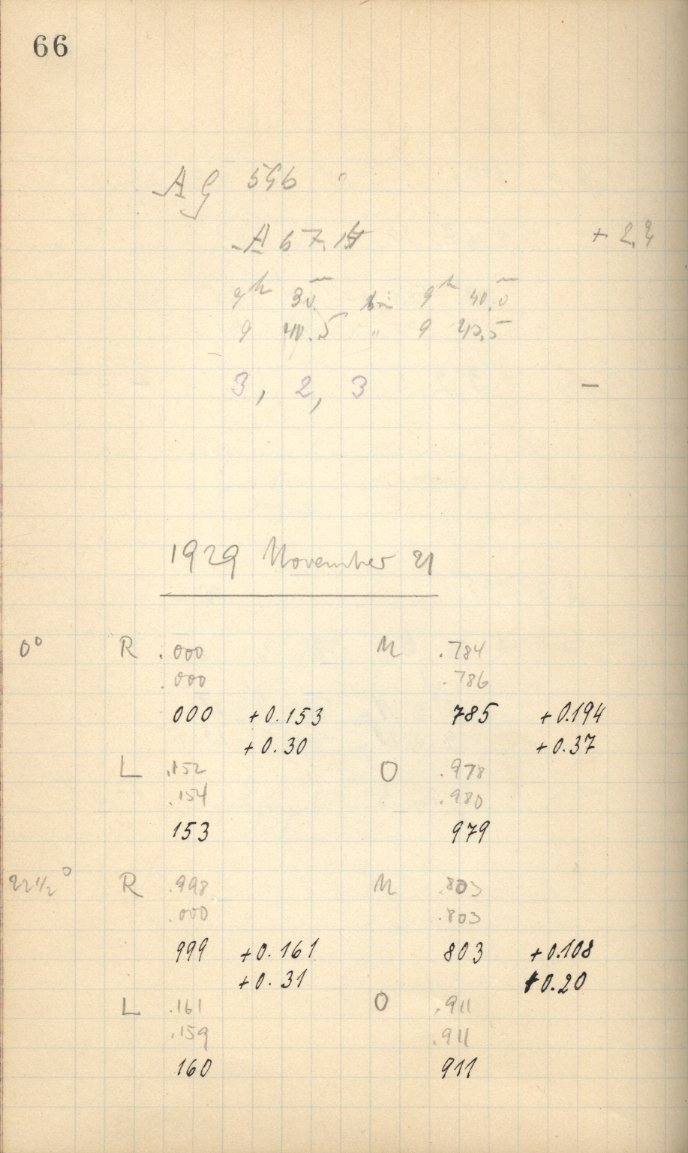 66
AG 596
A 67,
+ 2,2
9h 30 bis 9h 40,0
9 40.5 " 9 42,5
3, 2, 3 –
1929 November 21
0° R .000 M .784
.000 .786
000 +0.153 785 +0.194
+0.30 +0.37
L .152 O .978
.154 .980
153 979
22½° R .998 M .803
.000 .803
999 +0.161 803 +0.108
+0.31 +0.20
L .161 O .911
.159 .911
160 911